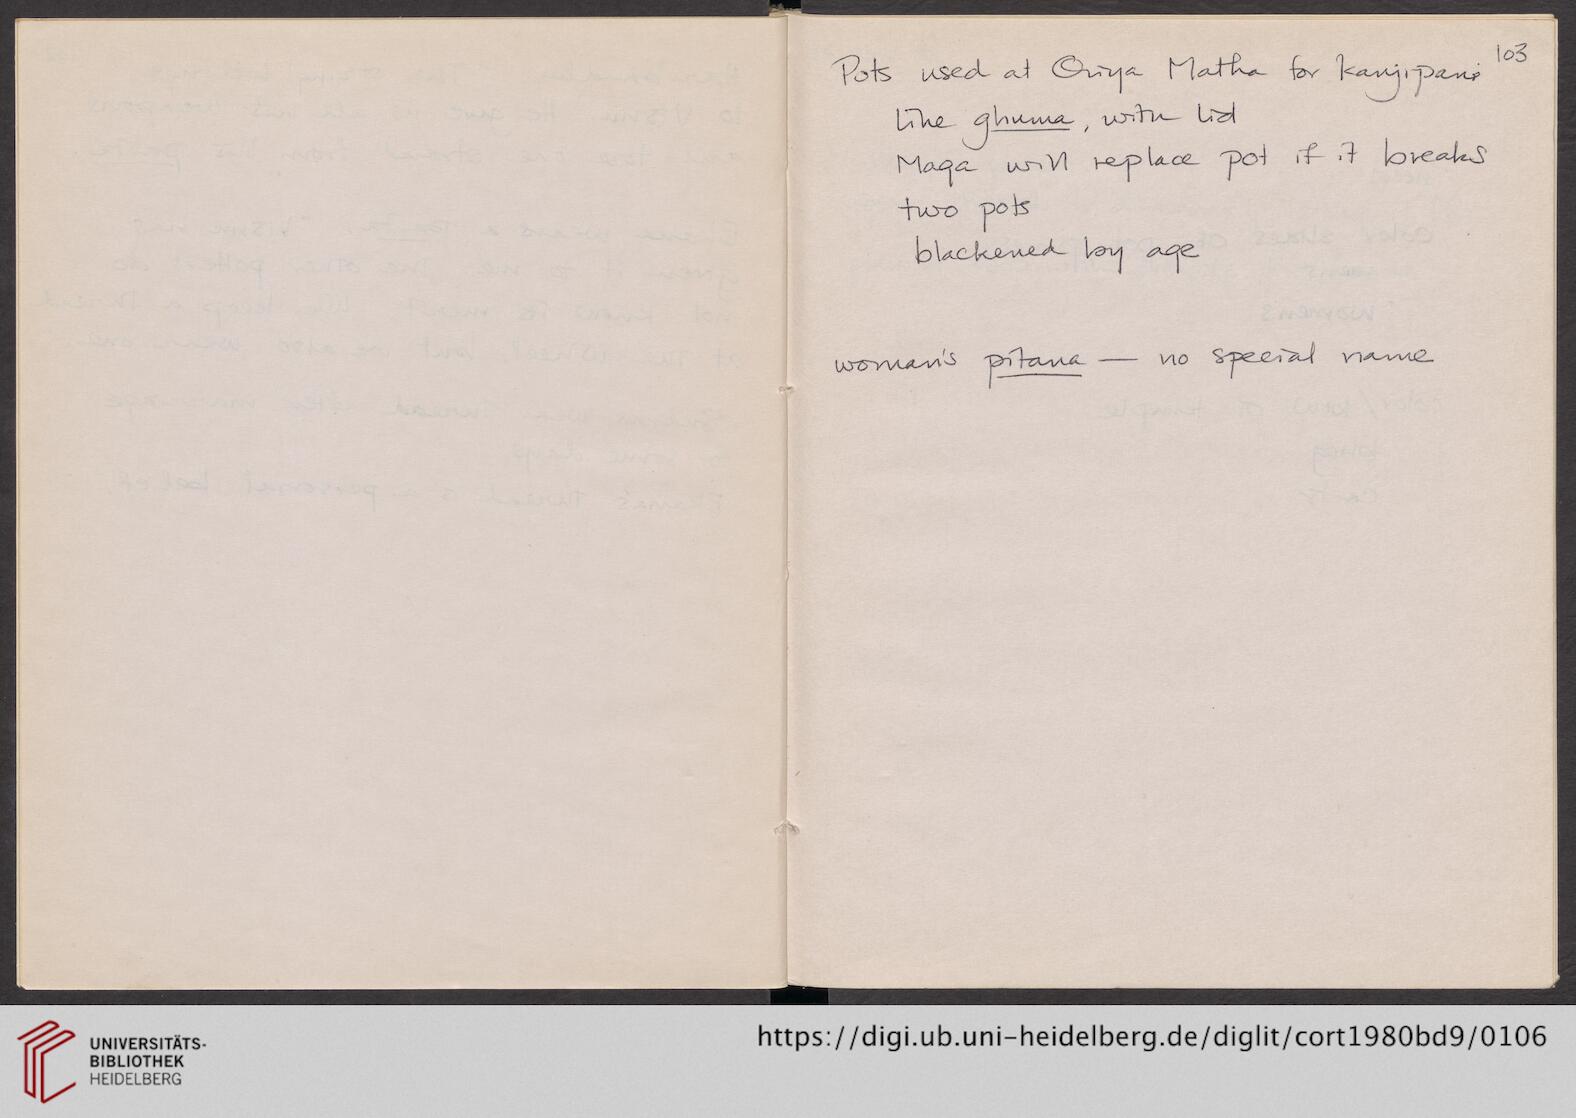 103
Pots used at Oriya Matha for kanjipani
like ghuma, with lid
Maga will replace pot if it breaks
two pots
blackened by age
woman's pitana — no special name
UNIVERSITÄTS-
BIBLIOTHEK
HEIDELBERG
https://digi.ub.uni-heidelberg.de/diglit/cort1980bd9/0106